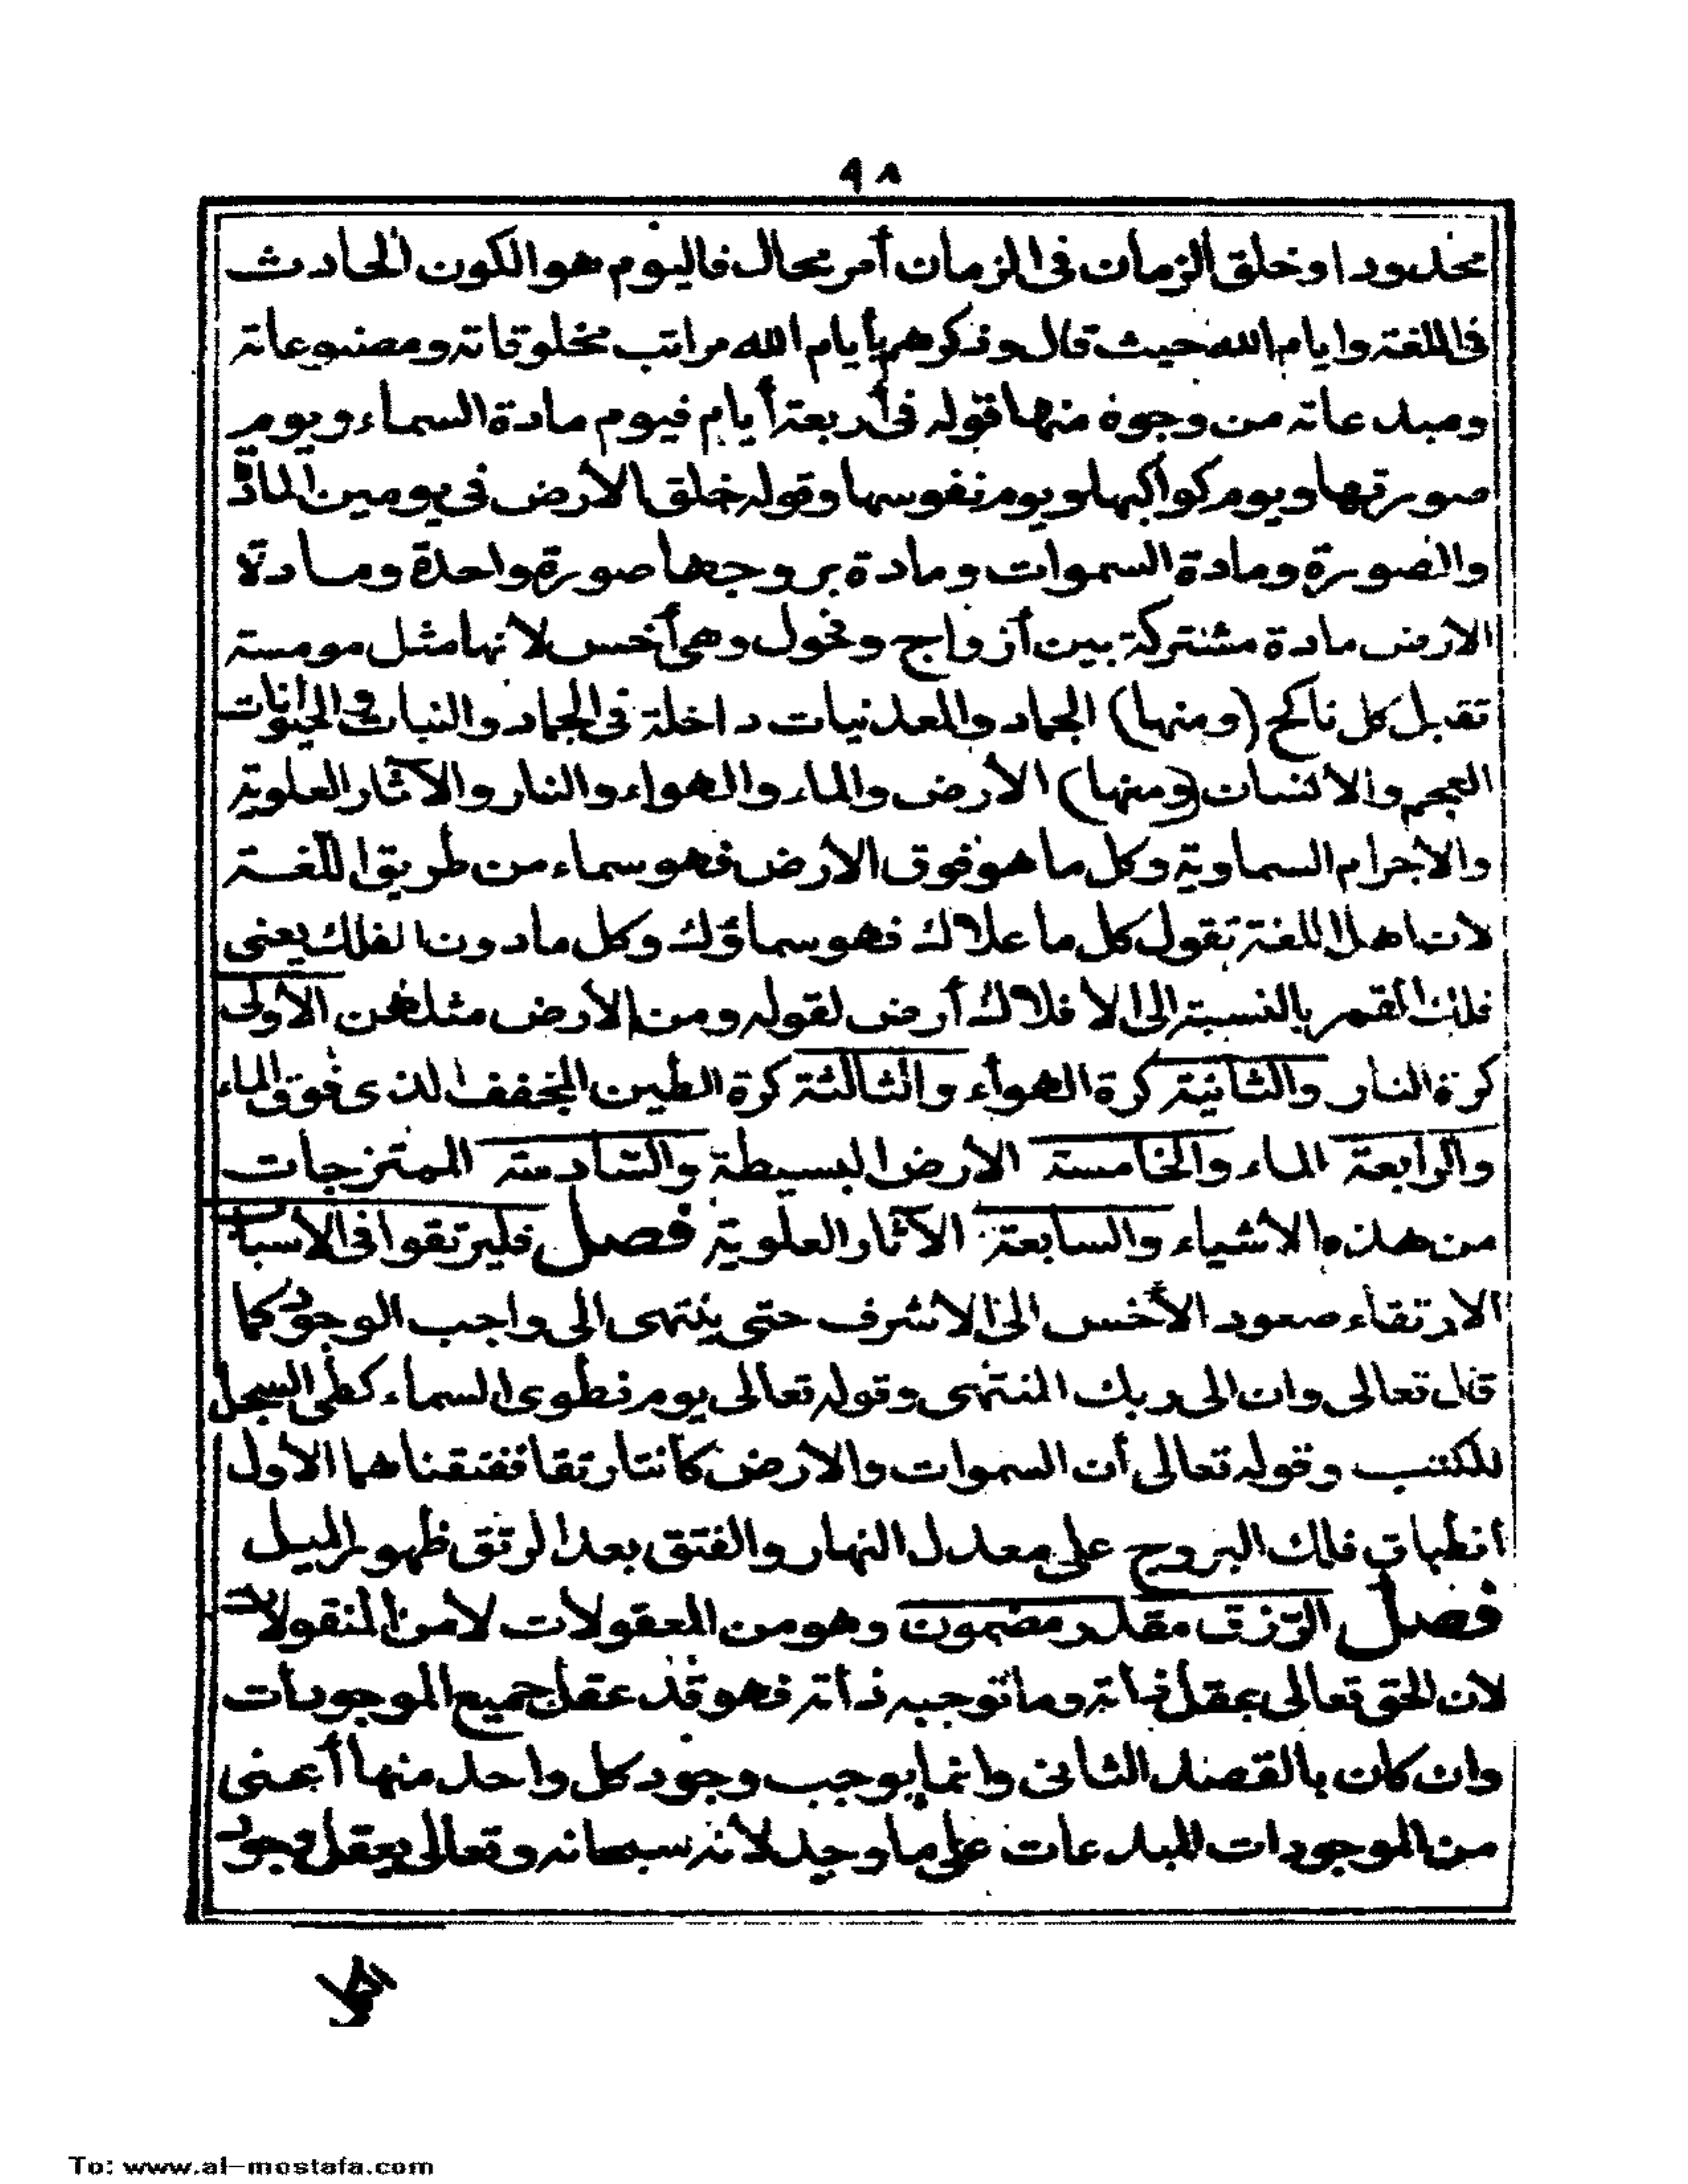 ٩٨
محدودا وخلق الزمان فى الزمان أمر محال فاليوم هو الكون الحادث
فى اللغة وايام الله حيث قال وذكرهم بأيام الله مراتب مخلوقاته ومصنوعاته
ومبدعاته من وجوه منها قوله فى أربعة أيام فيوم مادة السماء ويوم
صورتها ويوم كواكبها ويوم نفوسها وقوله خلق الأرض فى يومين المادة
والصورة ومادة السموات ومادة بروجها صورة واحدة ومادة
الارض مادة مشتركة بين أزواج وفحول وهى أخس لأنها مثل مومسة
تقبل كل ناكح (ومنها) الجماد والمعدنيات داخلة فى الجماد والنبات والحيوانات
العجم والانسان (ومنها) الأرض والماء والهواء والنار والآثار العلوية
والاجرام السماوية وكل ما هو فوق الارض فهو سماء من طريق اللغة
لان اهل اللغة تقول كل ما علاك فهو سماؤك وكل ما دون الفلك يعنى
فلك القمر بالنسبة الى الافلاك أرض لقوله ومن الأرض مثلهن الأولى
كرة النار والثانية كرة الهواء والثالثة كرة الطين المجفف الذى فوق الماء
والرابعة الماء والخامسة الأرض البسيطة والسادسة الممتزجات
من هذه الاشياء والسابعة الآثار العلوية فصل فليرتقوا فى الأسباب
الارتقاء صعود الأخس الى الاشرف حتى ينتهى الى واجب الوجود كما
قال تعالى وان الى ربك المنتهى وقوله تعالى يوم نطوى السماء كطى السجل
للكتب وقوله تعالى أن السموات والارض كانتا رتقا ففتقناهما الأول
انطباق فلك البروج على معدل النهار والفتق بعد الرتق ظهور الميل
فصل الرزق مقدر مضمون وهو من المعقولات لا من المنقولات
لان الحق تعالى عقل ذاته وما توجبه ذاته فهو قد عقل جميع الموجودات
وان كان بالقصد الثانى وانما يوجب وجود كل واحد منها أعنى
من الموجودات المبدعات على ما وجد لأنه سبحانه وتعالى يعقل وجود
To: www.al-mostafa.com